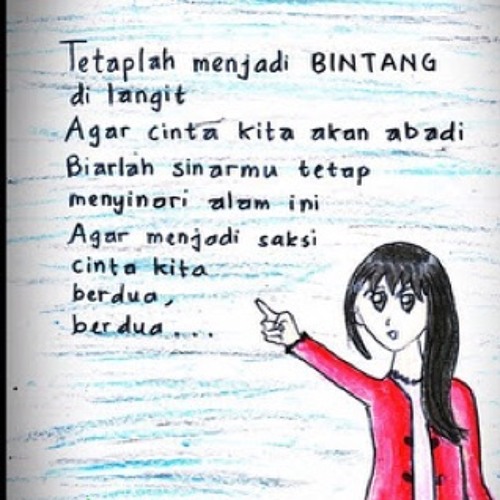 Tetaplah menjadi BINTANG
di langit
Agar cinta kita akan abadi
Biarlah sinarmu tetap
menyinari alam ini
Agar menjadi saksi
cinta kita
berdua,
berdua...